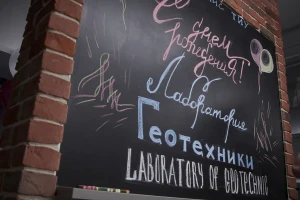 С
днем
рождения!
Лаборатория
Геотехники
LABORATORY OF GEOTECHNIC